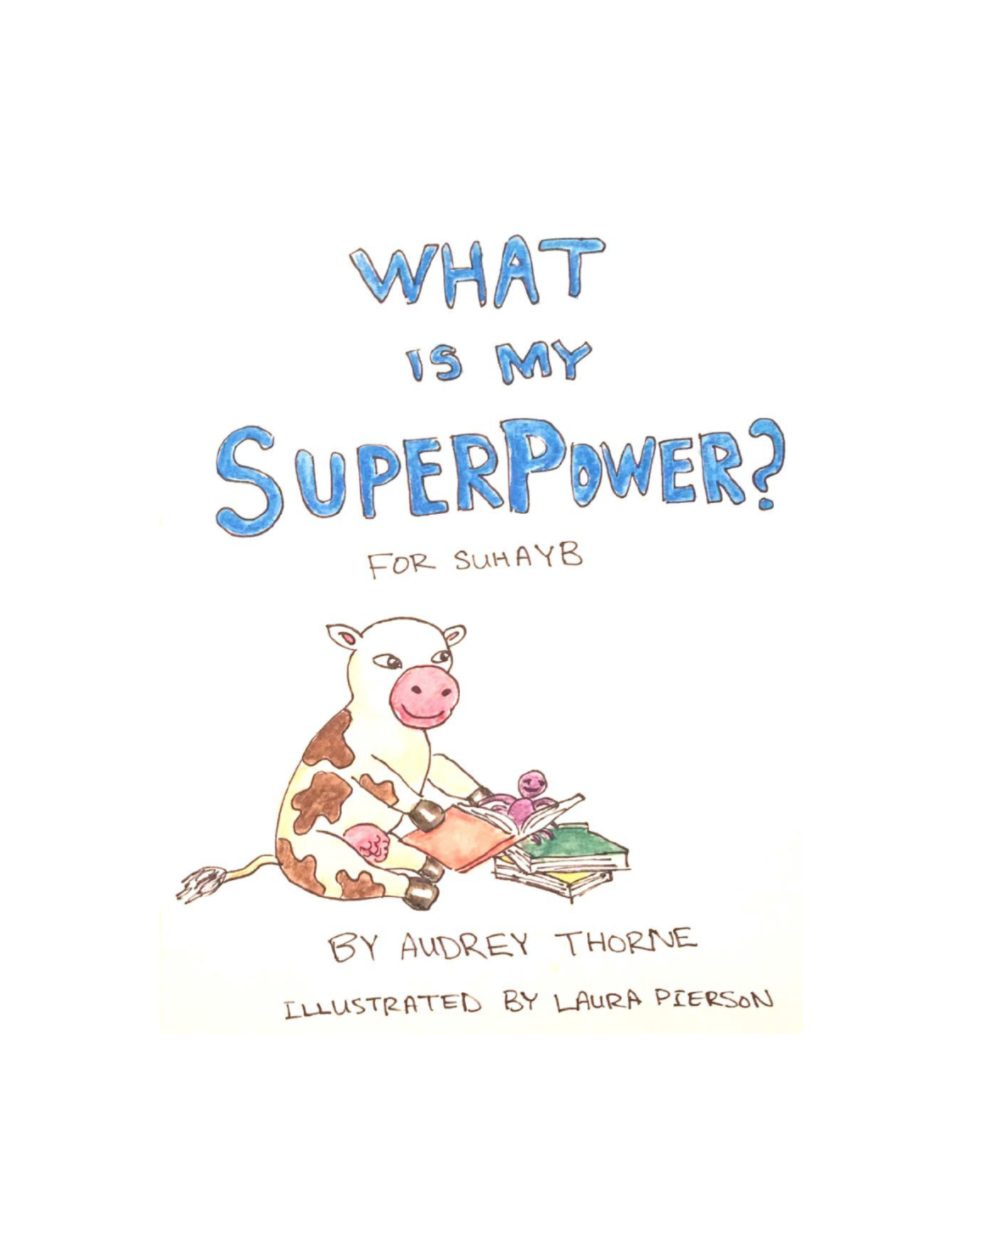 WHAT
IS MY
SUPERPOWER?
FOR SUHAYB
BY AUDREY THORNE
ILLUSTRATED BY LAURA PIERSON